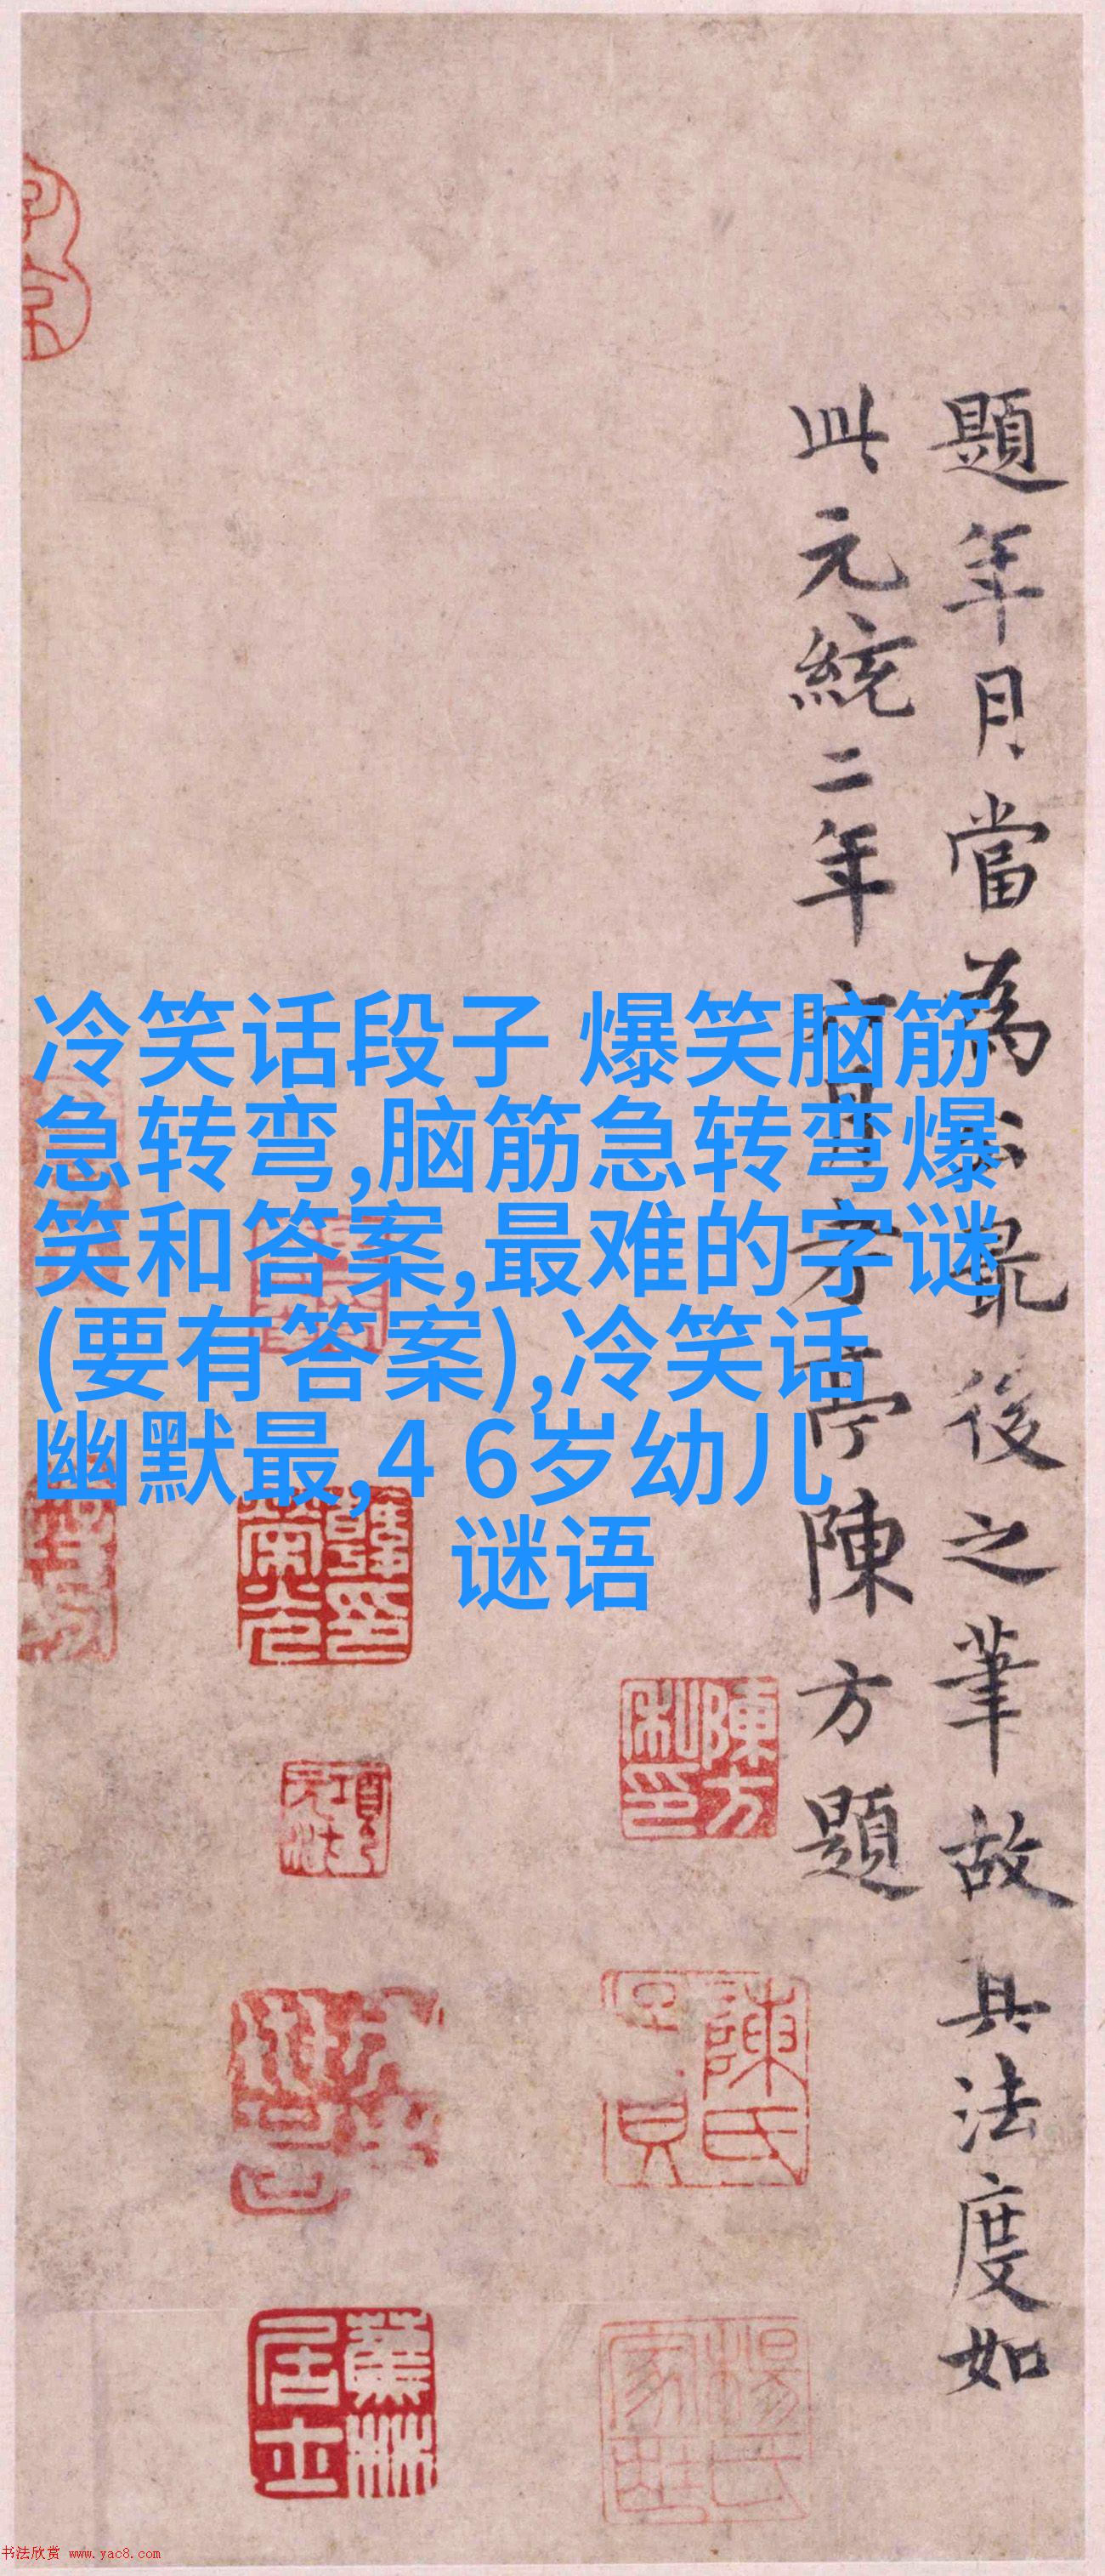 題年月當為公最後之筆故其法度如
此元統二年六月牙亭陳方題
冷笑话段子 爆笑脑筋
急转弯,脑筋急转弯爆
笑和答案,最难的字谜
(要有答案),冷笑话
幽默最,4 6岁幼儿
谜语
陳方
私印
陳氏
蕉林
居士
书法欣赏 www.yac8.com